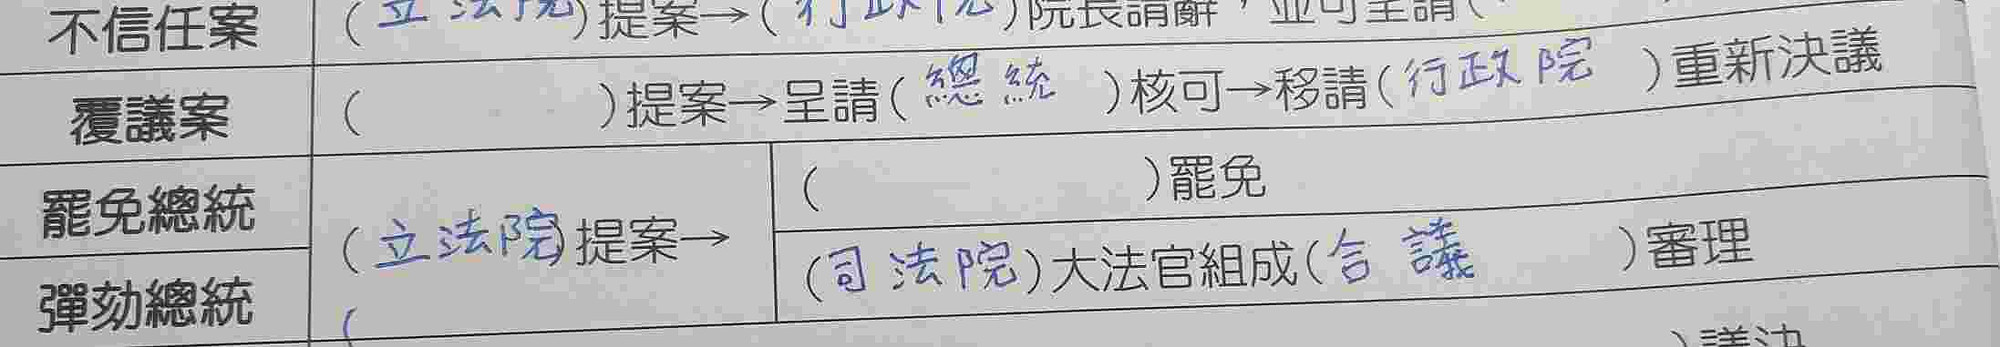 不信任案 (立法院)提案→(行政院)院長請辭，並可呈請(
覆議案 ( )提案→呈請(總統 )核可→移請(行政院 )重新決議
罷免總統 ( )罷免
(立法院)提案→
彈劾總統 (司法院)大法官組成(合議 )審理
( )議決